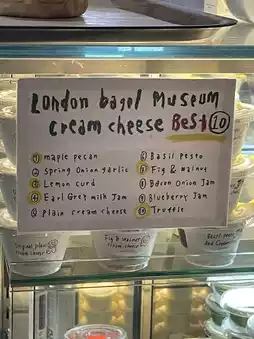 London bagel Museum
cream cheese Best 10
1 maple pecan
2 Spring Onion garlic
3 Lemon curd
4 Earl Grey Milk Jam
5 Plain cream cheese
6 Basil Pesto
7 Fig & Walnut
8 Bacon Onion Jam
9 Blueberry Jam
10 Truffle
Fig & Walnut
cream cheese